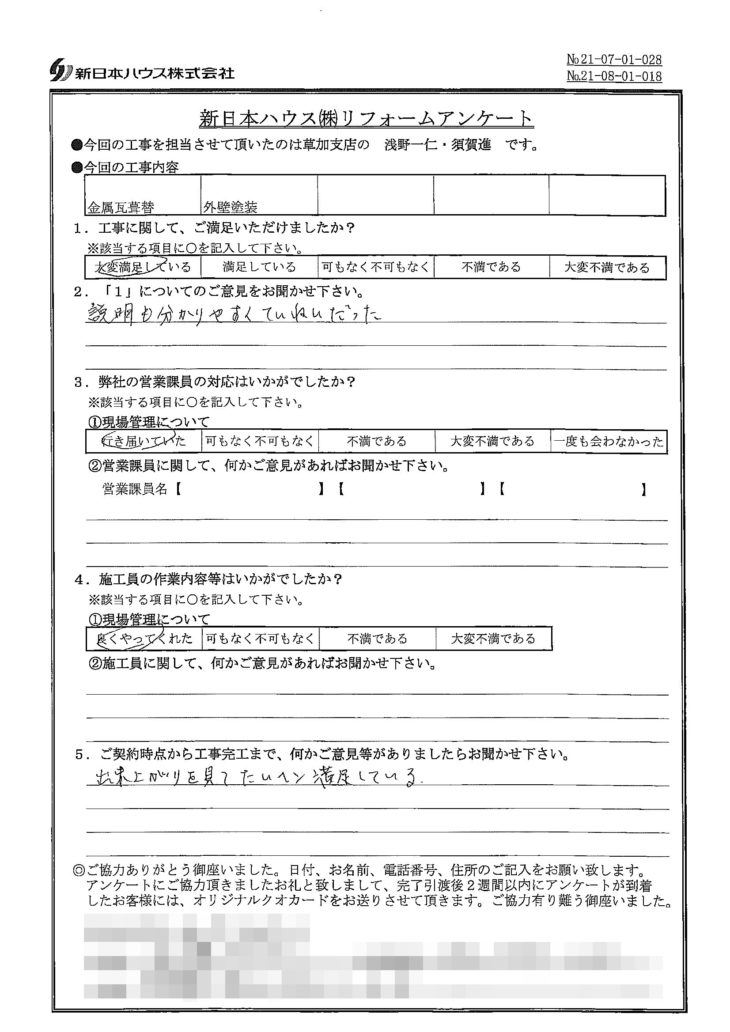 新日本ハウス株式会社
№21-07-01-028
№21-08-01-018
新日本ハウス㈱リフォームアンケート
●今回の工事を担当させて頂いたのは草加支店の 浅野一仁・須賀進 です。
●今回の工事内容
金属瓦葺替 外壁塗装
1．工事に関して、ご満足いただけましたか？
※該当する項目に○を記入して下さい。
大変満足している 満足している 可もなく不可もなく 不満である 大変不満である
2．「1」についてのご意見をお聞かせ下さい。
説明も分かりやすくていねいだった
3．弊社の営業課員の対応はいかがでしたか？
※該当する項目に○を記入して下さい。
①現場管理について
行き届いていた 可もなく不可もなく 不満である 大変不満である 一度も会わなかった
②営業課員に関して、何かご意見があればお聞かせ下さい。
営業課員名【 】【 】【 】
4．施工員の作業内容等はいかがでしたか？
※該当する項目に○を記入して下さい。
①現場管理について
良くやってくれた 可もなく不可もなく 不満である 大変不満である
②施工員に関して、何かご意見があればお聞かせ下さい。
5．ご契約時点から工事完工まで、何かご意見等がありましたらお聞かせ下さい。
出来上がりを見てたいヘン満足している.
◎ご協力ありがとう御座いました。日付、お名前、電話番号、住所のご記入をお願い致します。
アンケートにご協力頂きましたお礼と致しまして、完了引渡後２週間以内にアンケートが到着
したお客様には、オリジナルクオカードをお送りさせて頂きます。ご協力有り難う御座いました。